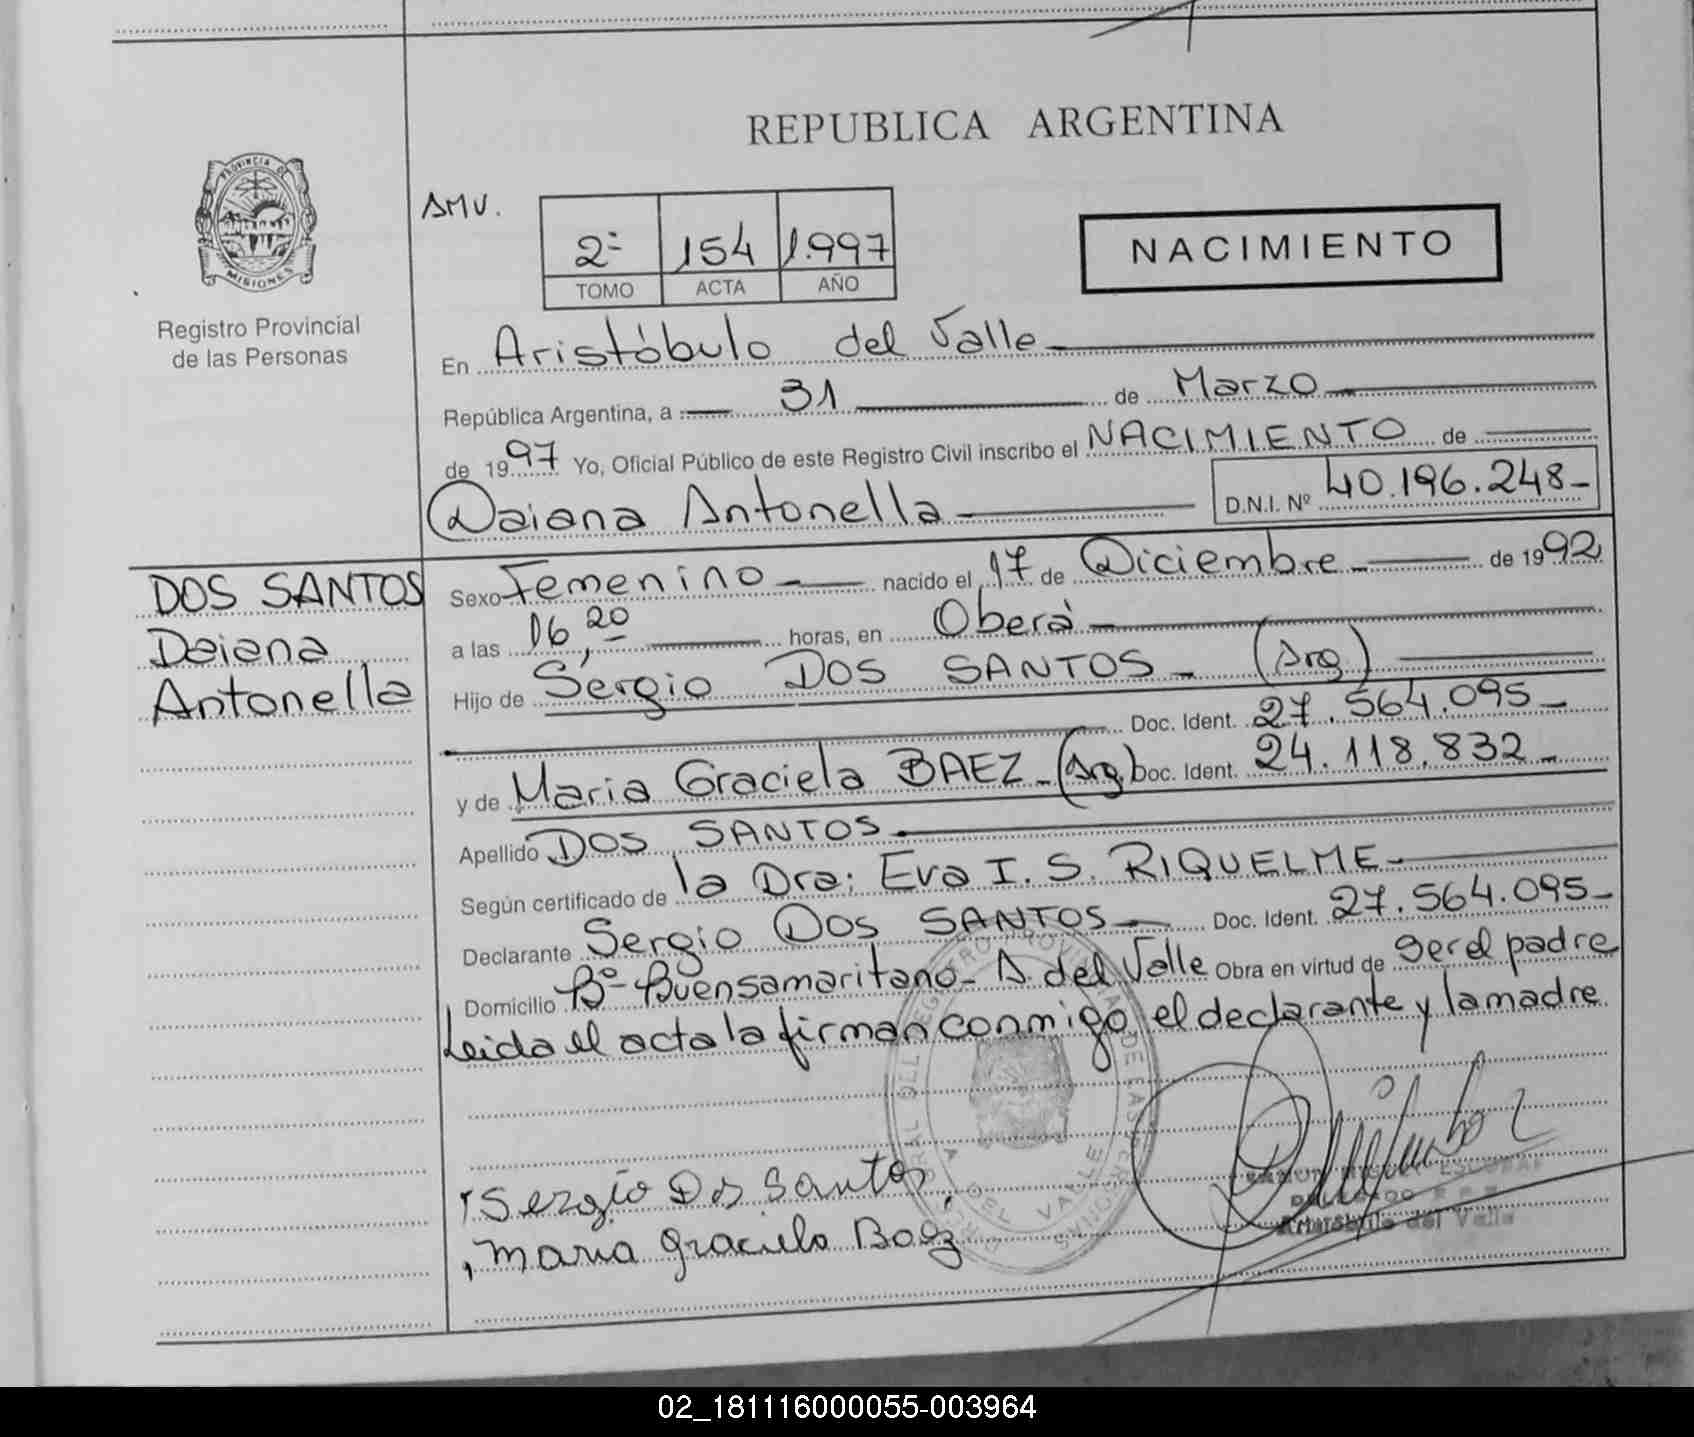 REPUBLICA ARGENTINA
PROVINCIA DE
MISIONES
Registro Provincial
de las Personas
AMV.
2º 154 1.997
TOMO ACTA AÑO
NACIMIENTO
En Aristóbulo del Valle
República Argentina, a 31 de Marzo
de 1997 Yo, Oficial Público de este Registro Civil inscribo el NACIMIENTO de
Daiana Antonella D.N.I. Nº 40.196.248-
DOS SANTOS
Daiana
Antonella
Sexo Femenino nacido el 17 de Diciembre de 1992
a las 16,20 horas, en Oberá
Hijo de Sergio DOS SANTOS - (Arg)
Doc. Ident. 27.564.095-
y de Maria Graciela BAEZ - (Arg) Doc. Ident. 24.118.832-
Apellido DOS SANTOS
Según certificado de la Dra: Eva I. S. RIQUELME-
Declarante Sergio DOS SANTOS Doc. Ident. 27.564.095-
Domicilio Bº Buensamaritano- A. del Valle Obra en virtud de ser el padre
Leida el acta la firman conmigo, el declarante y la madre
Sergio Dos Santos
Maria Graciela Baez
RAMON ESCOBAR
DELEGADO R.P.P.
Aristóbulo del Valle
02_181116000055-003964